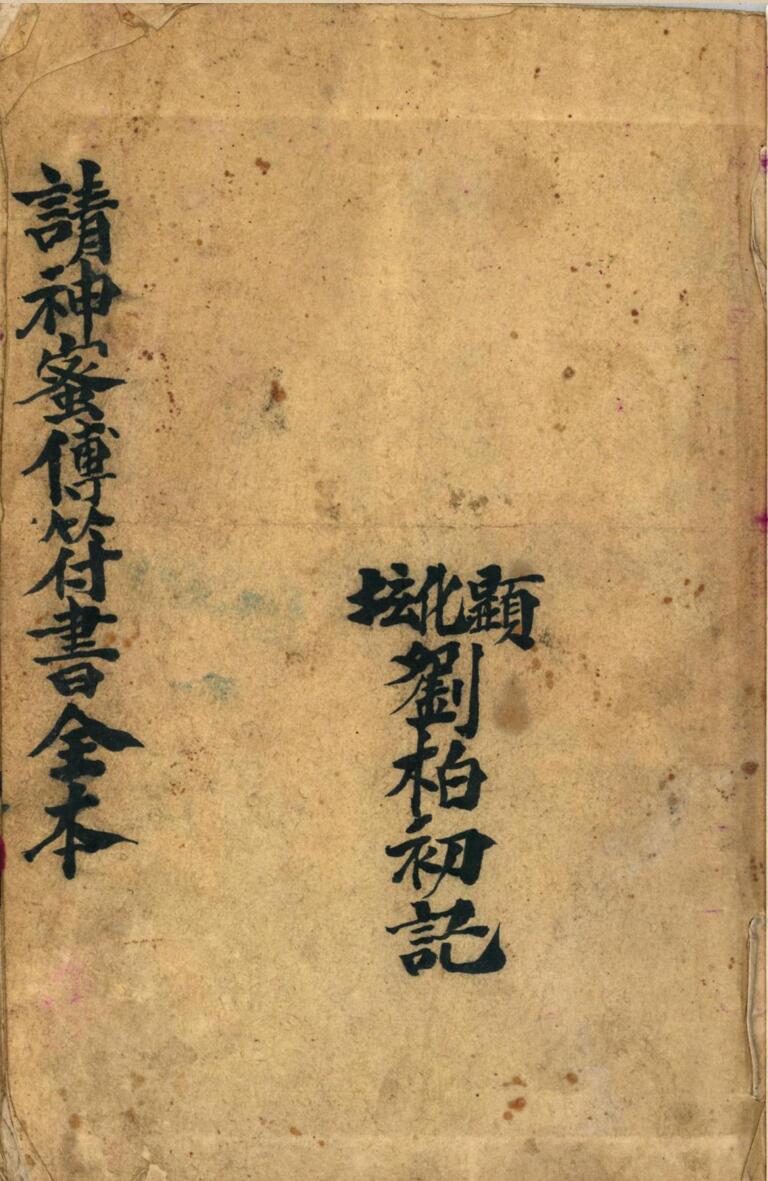 顕化坛
劉柏初記
請神蜜傅符書全本